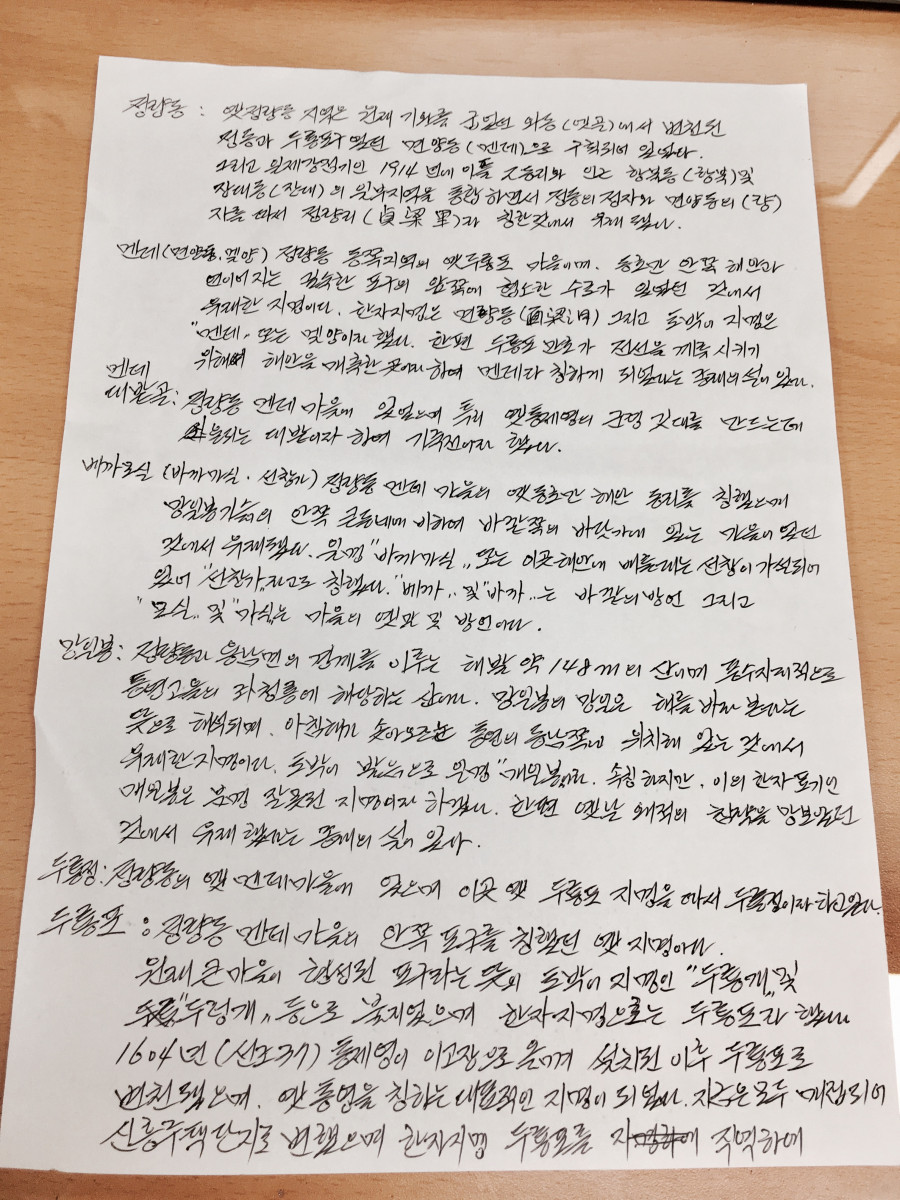 정량동 : 옛 정량동 지역은 원래 기와를 구웠던 와동(옛골)에서 변천된
정동과 두룡포구 였던 면양동(멘데)으로 구획되어 있었다.
그리고 일제강점기인 1914년에 이들 동리와 인근 항북동(항북)및
장대동(장대)의 일부지역을 통합하면서 정동의 정자와 면양동의 (량)
자를 따서 정량리(貞梁里)라 칭한것에서 유래됐다.
멘데(면양동, 멫양) 정량동 동쪽지역의 옛 두룡포 마을이며. 동호만 안쪽 해안과
연이어지는 길숙한 포구의 앞쪽에 협소한 수로가 있었던 것에서
유래한 지명이다. 한자지명은 면량동(面梁洞) 그리고 토박이 지명은
"멘데„ 또는 멫양이라 했다. 한편 두룡포 만호가 전선을 계류 시키기
위해 해안을 매축한 곳이라 하여 멘데라 칭하게 되었다는 중래의 설이 있다.
멘데
대밭골 : 정량동 멘데 마을에 있었으며 특히 옛통제영의 군영 깃대를 만드는데
쓰는 대밭이라 하여 기죽전이라 했다.
베까모실 (바까가실 · 선창가) 정량동 멘데 마을의 옛 동호만 해안 동리를 칭했으며
망일봉기슭의 안쪽 큰동네에 비하여 바깥쪽의 바닷가에 있는 마을이었던
것에서 유래됐다. 일명 "바까가실„ 또는 이곳해안에 배를대는 선창이 가설되어
있어 "선창가"라고도 칭했다. "베까„ 및 "바까„는 바깥의방언 그리고
"모실„ 및 "가실„는 마을의 옛말 및 방언이다.
망일봉 : 정량동과 용남면의 경계를 이루는 해발 약 148m의 산이며 풍수지리적으로
통영고을의 좌청룡에 해당하는 산이다. 망일봉의 망일은 해를 바라 본다는
뜻으로 해석되며. 아침해가 솟아오르는 통영의 동남쪽에 위치해 있는 것에서
유래한 지명이다. 토박이 발음으로 일명 "매일봉이라. 속칭하지만, 이의 한자 표기인
매일봉은 분명 잘못된 지명이라 하겠다. 한편 옛날 왜적의 침략을 망보았던
것에서 유래 했다는 중래의 설이 있다
두룡정 : 정량동의 옛 멘데마을에 있으며 이곳 옛 두룡포 지명을 따서 두룡정이라 하고있다.
두룡포 : 정량동 멘데 마을의 안쪽 포구를 칭했던 옛 지명이다.
원래 큰마을이 형성된 포구라는 뜻의 토박이 지명인 "두룡개„ 및
"두렁개„ 등으로 불리었으며 한자지명으로는 두룡포라 했다
1604년(선조37) 통제영이 이고장으로 옮겨 설치된 이후 두룡포로
변천됐으며. 옛 통영을 칭하는 대표적인 지명이 되었다. 지금은 모두 매립되어
신흥주택단지로 변했으며 한자지명 두룡포를 직역하여